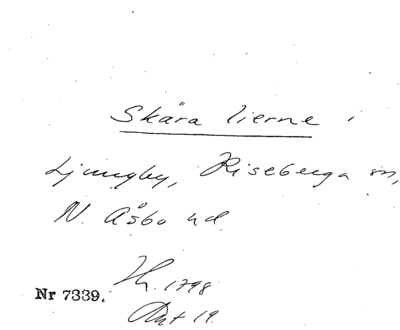 Skära lierne i
Ljungby, Riseberga sn,
N. Åsbo hd.
1798
Nr 7339.
19.